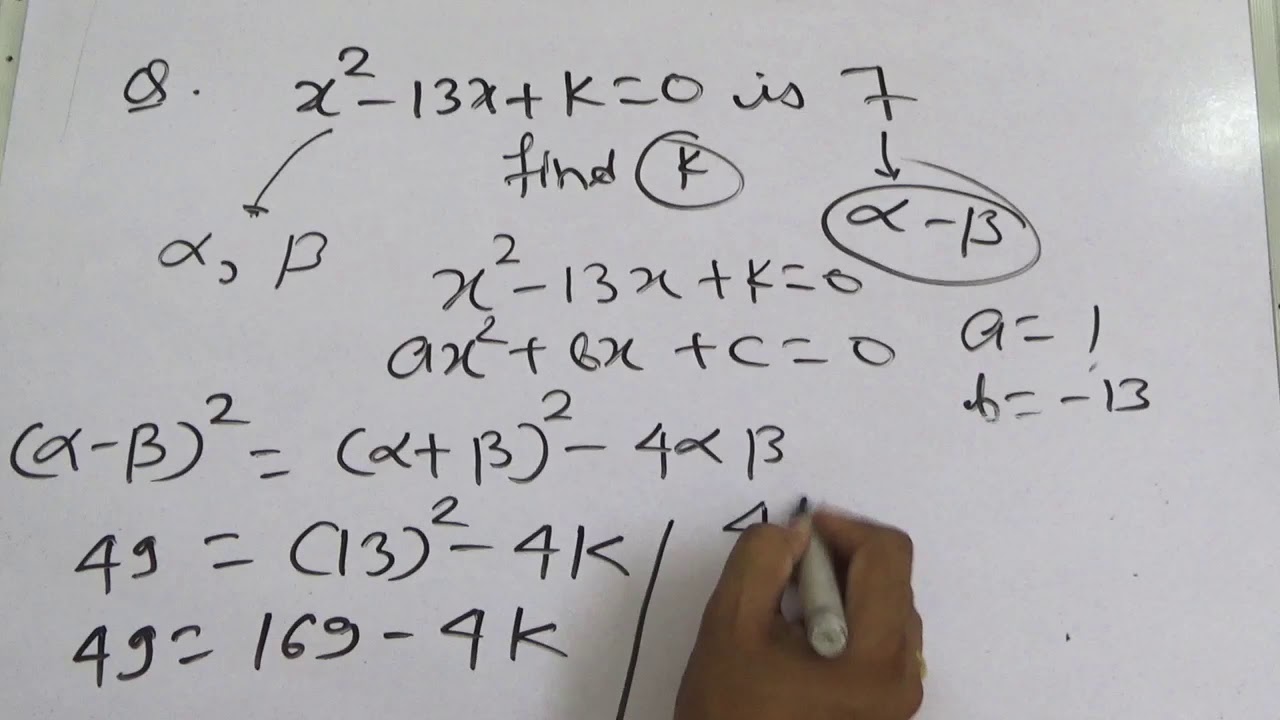 Q. x² - 13x + K = 0 is 7
find K
α, β
α - β
x² - 13x + K = 0
ax² + bx + c = 0
a = 1
b = -13
(α - β)² = (α + β)² - 4αβ
49 = (13)² - 4K
49 = 169 - 4K
4